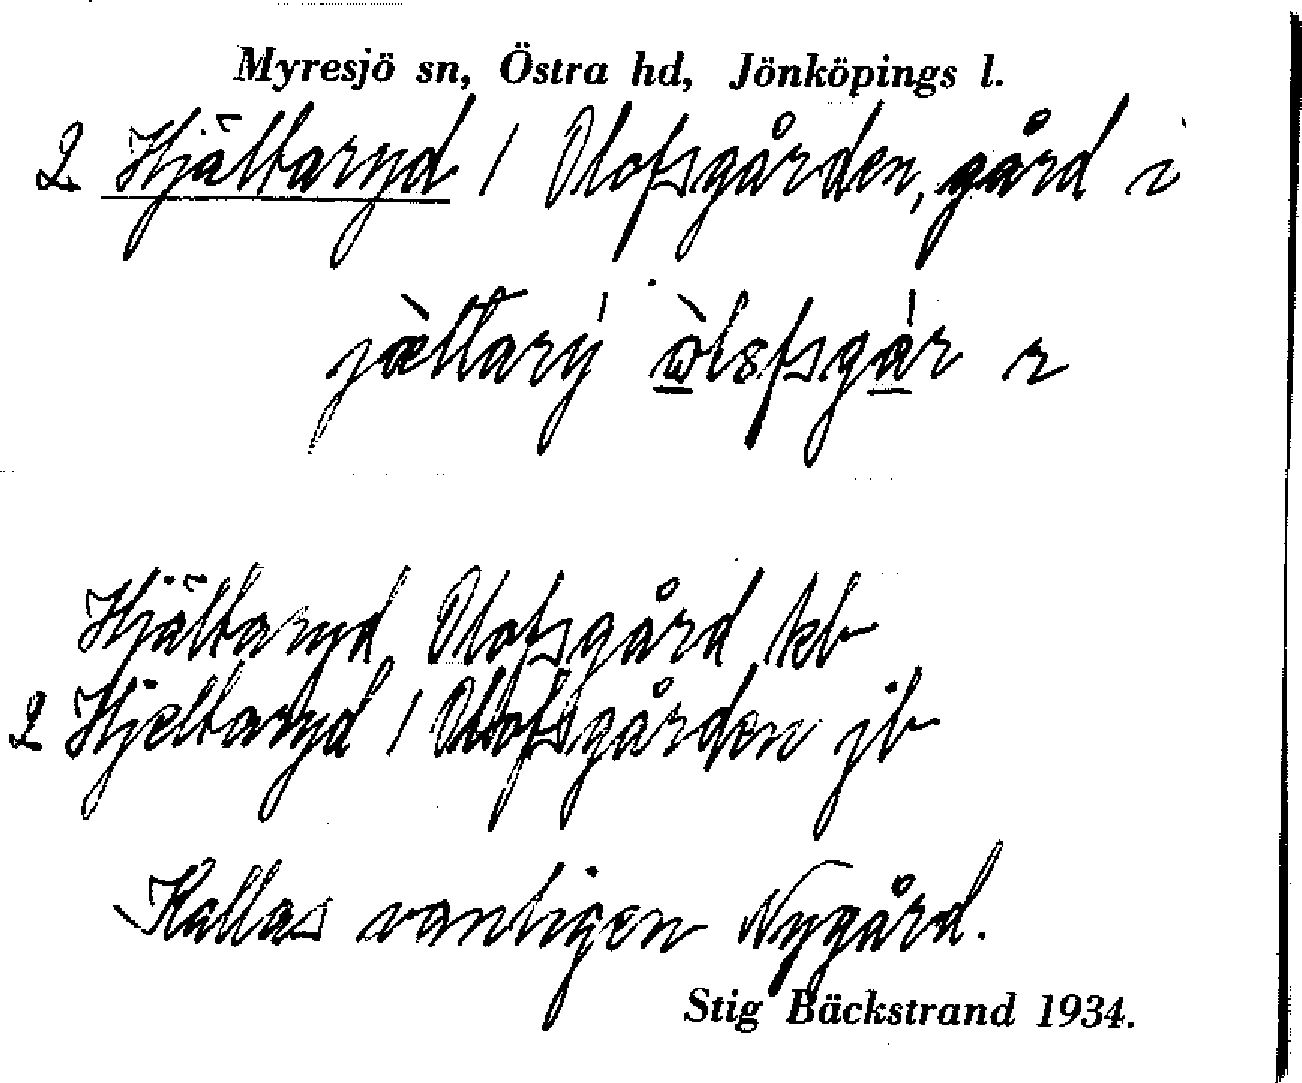 Myresjö sn, Östra hd, Jönköpings l.
2 Hjältaryd / Olofsgården, gård i
jœ̀ttarý
Hjältaryd Olofsgård kb
2 Hjeltaryd / Olofsgården jb
Kallas vanligen Nygård.
Stig Bäckstrand 1934.